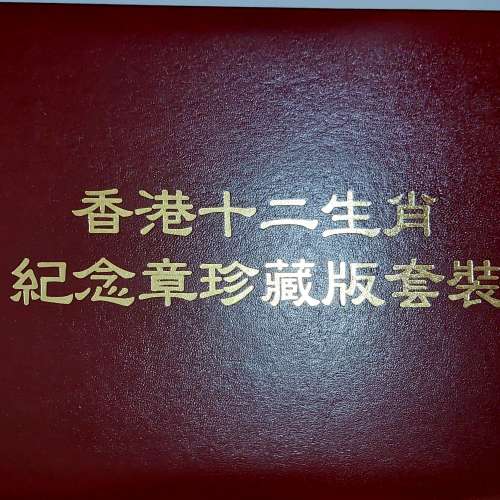 香港十二生肖
紀念章珍藏版套裝